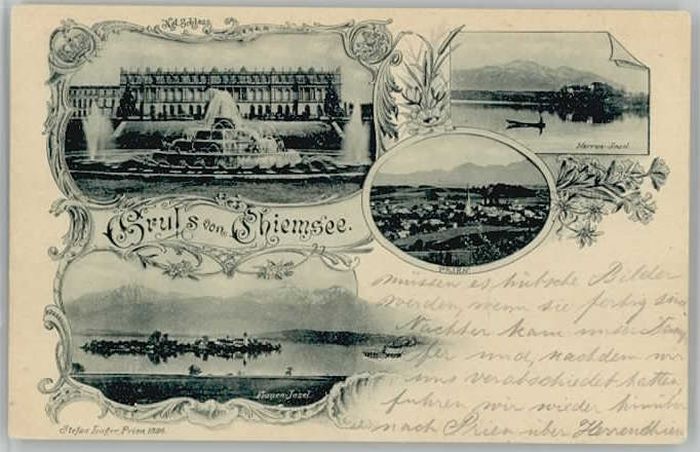 Kgl. Schloss
Herren-Insel.
Gruss vom Chiemsee.
PRIEN
Frauen-Insel.
müssen es hübsche Bilder
werden, wenn sie fertig sind
Nachher kam unser Dam
fer und, nachdem wir
uns verabschiedet hatten
fuhren wir wieder hinüber
nach Prien über Herrenchiem
Prien 1896.